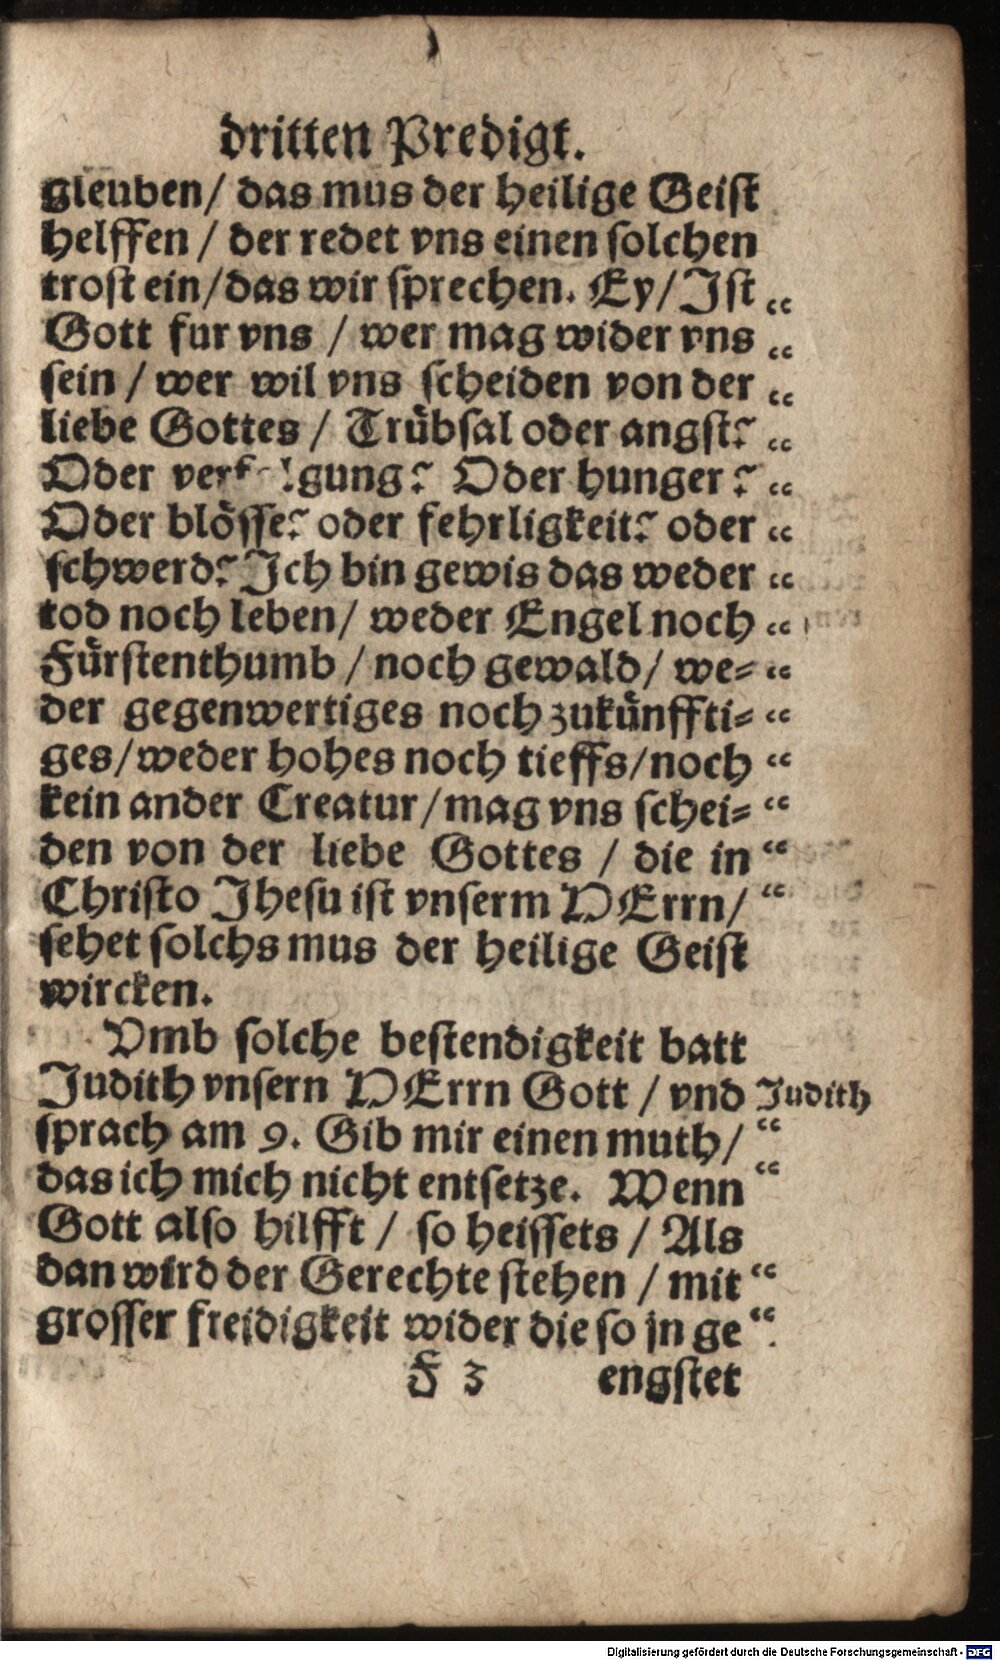 dritten Predigt.
gleuben/ das mus der heilige Geist
helffen / der redet vns einen solchen
trost ein/das wir sprechen. Ey/Ist “
Gott fur vns / wer mag wider vns “
sein / wer wil vns scheiden von der “
liebe Gottes / Trübsal oder angst? “
Oder verfolgung? Oder hunger? “
Oder blösse? oder fehrligkeit? oder “
schwerd? Ich bin gewis das weder “
tod noch leben/ weder Engel noch “
Fürstenthumb / noch gewald/ we= “
der gegenwertiges noch zukünffti= “
ges/weder hohes noch tieffs/noch “
kein ander Creatur/mag vns schei= “
den von der liebe Gottes / die in “
Christo Jhesu ist vnserm HErrn/ “
sehet solchs mus der heilige Geist
wircken.
Vmb solche bestendigkeit batt
Judith vnsern HErrn Gott / vnd Judith
sprach am 9. Gib mir einen muth/ “
das ich mich nicht entsetze. Wenn “
Gott also hilfft / so heissets / Als
dan wird der Gerechte stehen / mit “
grosser freidigkeit wider die so jn ge “
F 3 engstet
Digitalisierung gefördert durch die Deutsche Forschungsgemeinschaft - DFG